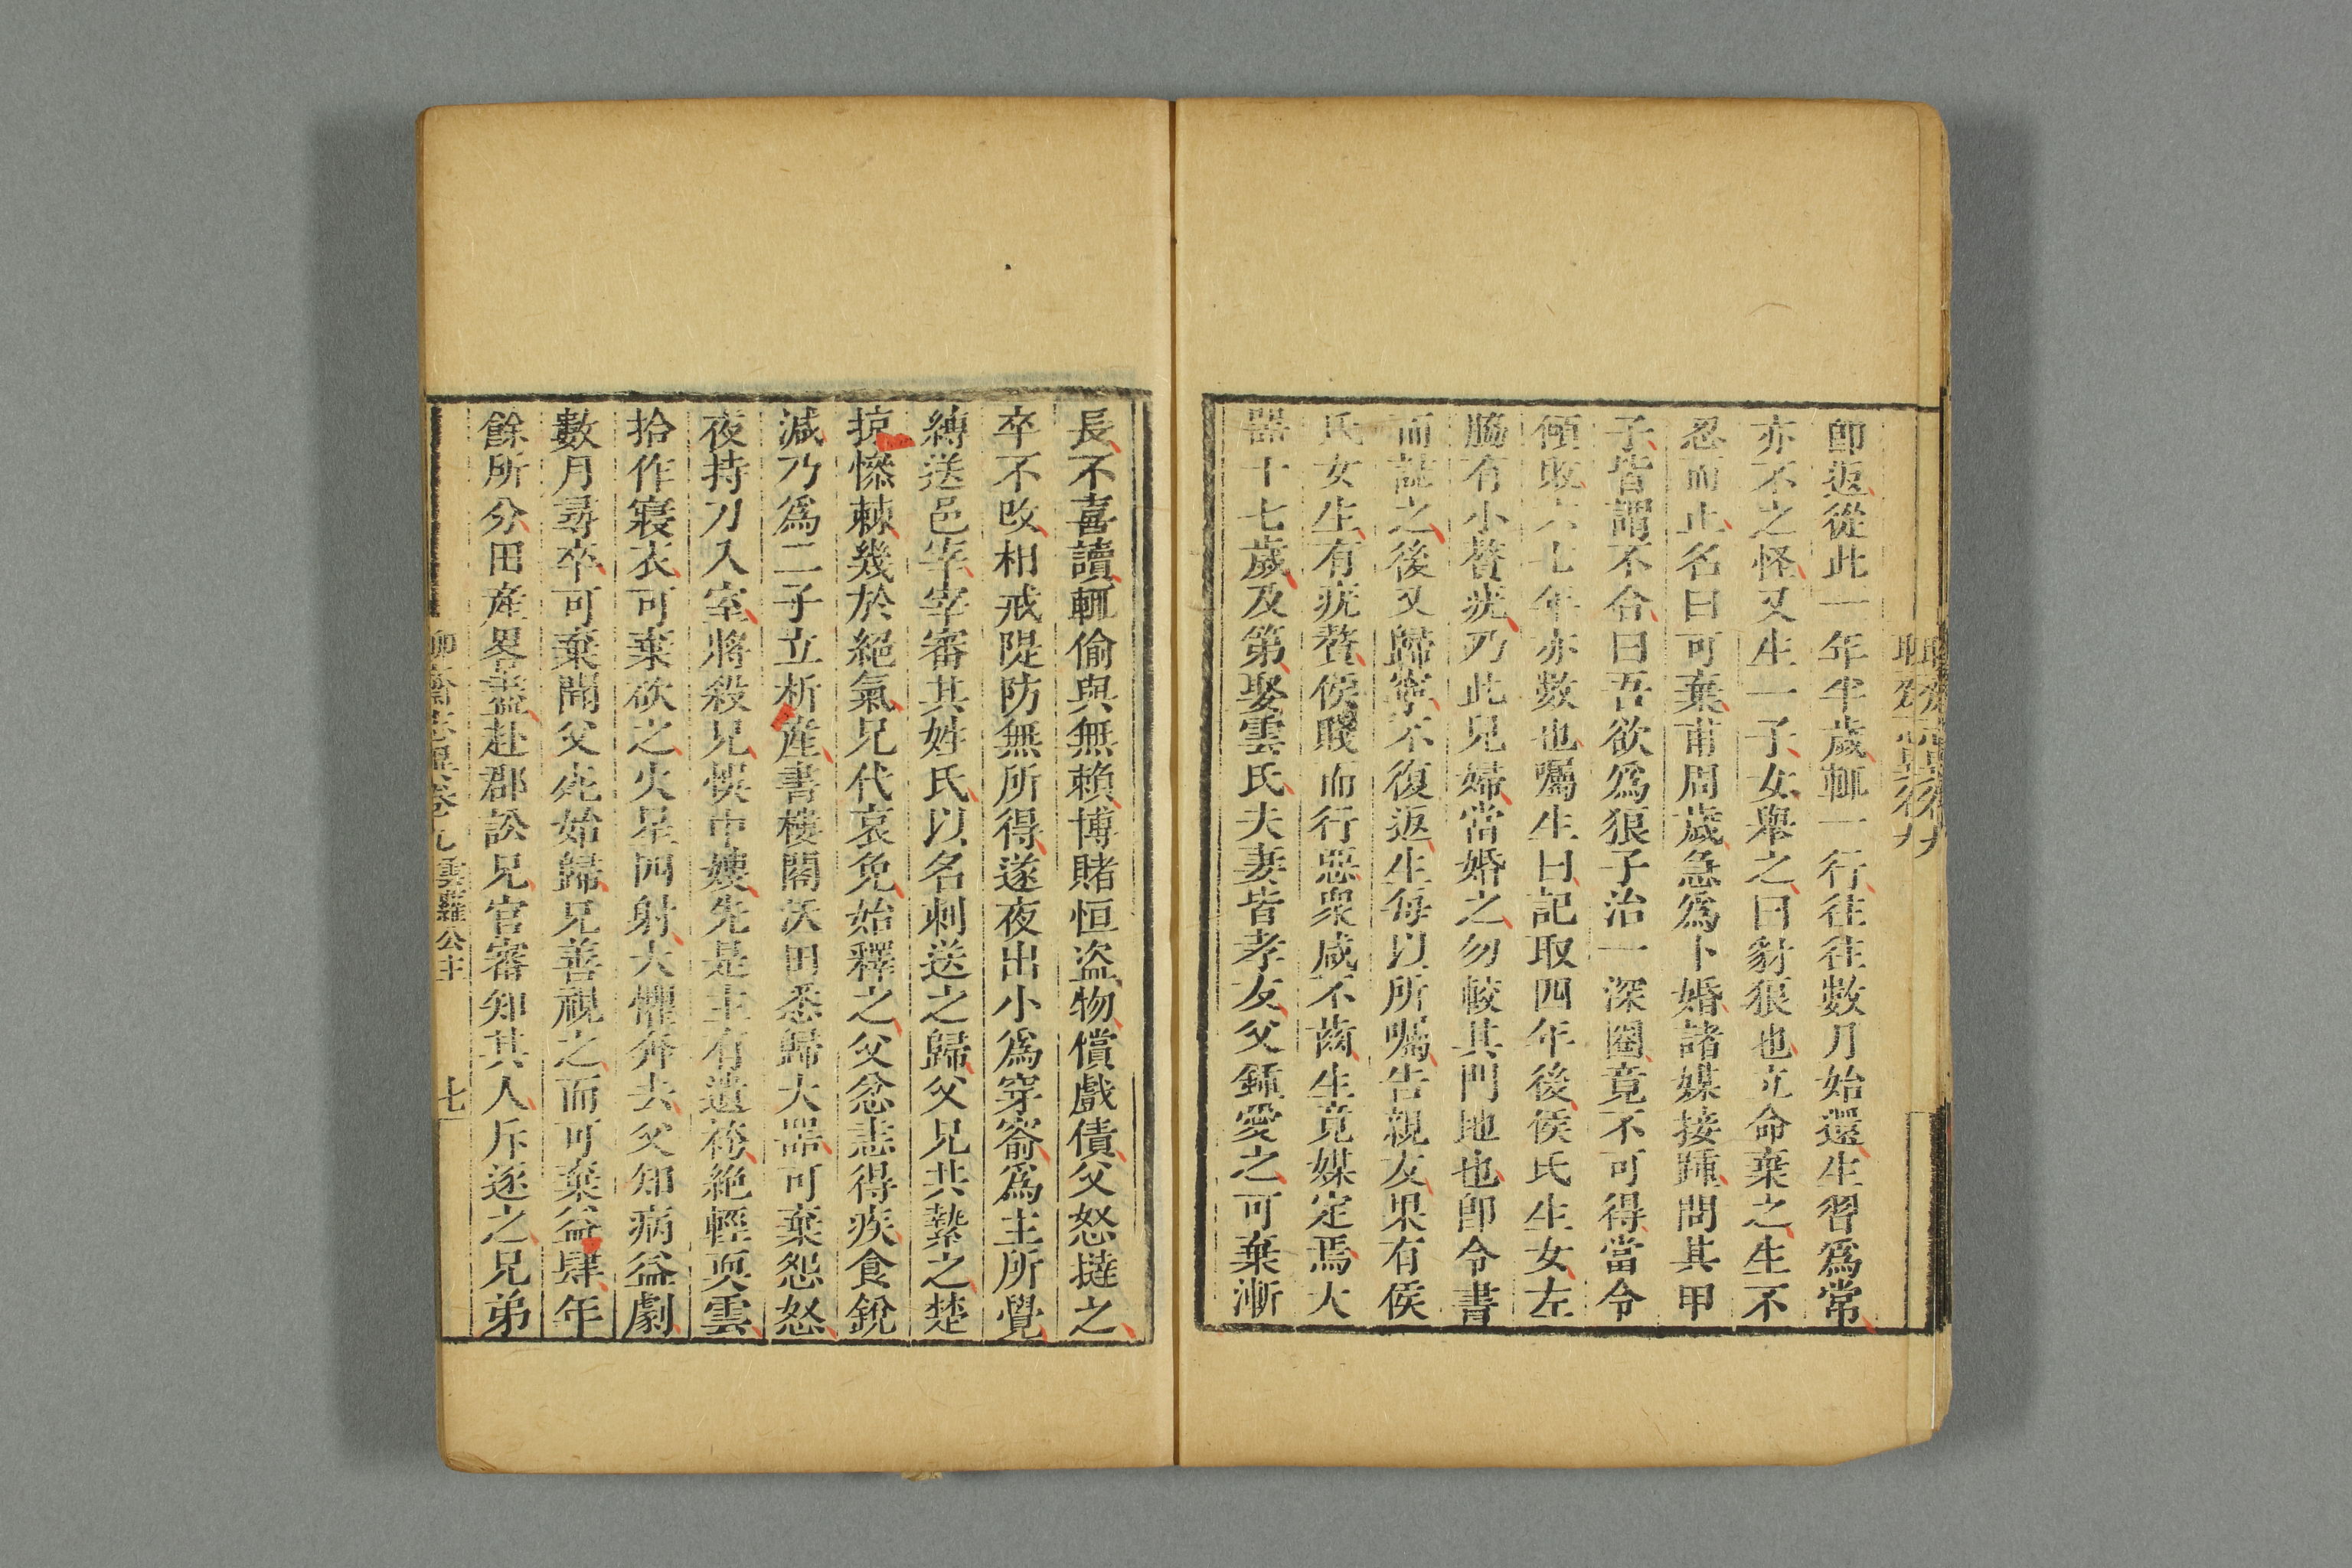 卽返從此一年半歲輒一行往往數月始還生習爲常
亦不之怪又生一子女舉之曰豺狼也立命棄之生不
忍而止名曰可棄甫周歲急爲卜婚諸媒接踵問其甲
子皆謂不合曰吾欲爲狼子治一深圈竟不可得當令
傾敗六七年亦數也囑生曰記取四年後侯氏生女左
脇有小贅疣乃此兒婦當婚之勿較其門地也卽令書
而誌之後又歸寧不復返生每以所囑告親友果有侯
氏女生有疣贅侯賤而行惡衆咸不齒生竟媒定焉大
器十七歲及第娶雲氏夫妻皆孝友父鍾愛之可棄漸
長不喜讀輒偷與無賴博賭恒盜物償戲債父怒撻之
卒不改相戒隄防無所得遂夜出小爲穿窬爲主所覺
縛送邑宰宰審其姓氏以名刺送之歸父兄共縶之楚
掠慘棘幾於絕氣兄代哀免始釋之父忿恚得疾食銳
減乃爲二子立析產書樓閣沃田悉歸大器可棄怨怒
夜持刀入室將殺兄悞中嫂先是主有遺袴絕輕耎雲
拾作寢衣可棄砍之火星四射大懼奔去父知病益劇
數月尋卒可棄聞父死始歸兄善視之而可棄益肆年
餘所分田產畧盡赴郡訟兄官審知其人斥逐之兄弟
聊齋志異卷九 雲蘿公主 七